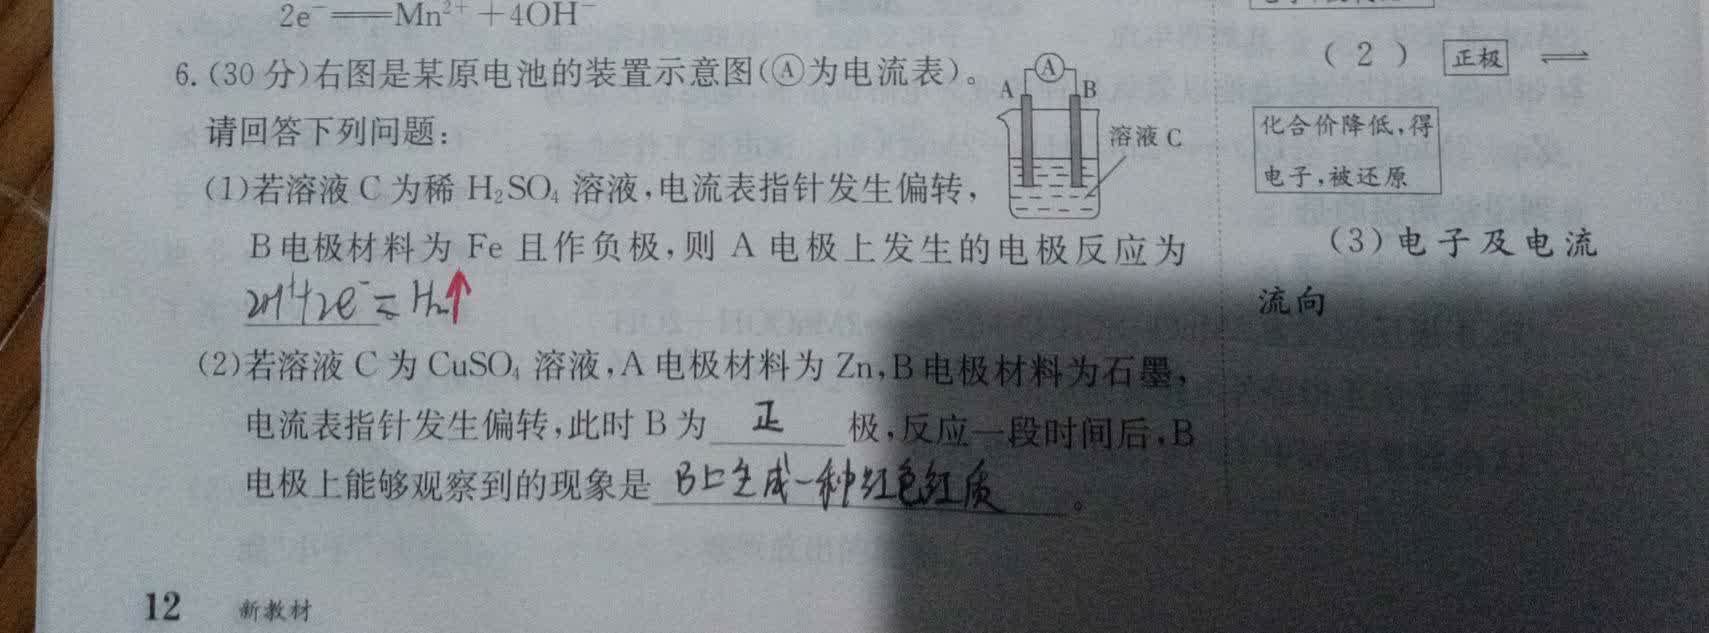 2e⁻══Mn²⁺+4OH⁻
6.(30分)右图是某原电池的装置示意图(Ⓐ为电流表)。
请回答下列问题:
A
A
B
溶液C
(1)若溶液C为稀H₂SO₄溶液,电流表指针发生偏转,
B电极材料为Fe且作负极,则A电极上发生的电极反应为
2H⁺+2e⁻=H₂↑
(2)若溶液C为CuSO₄溶液,A电极材料为Zn,B电极材料为石墨,
电流表指针发生偏转,此时B为 正 极,反应一段时间后,B
电极上能够观察到的现象是 B上生成一种红色红质 。
12 新教材
(2) 正极 ⇌
化合价降低,得
电子,被还原
(3)电子及电流
流向